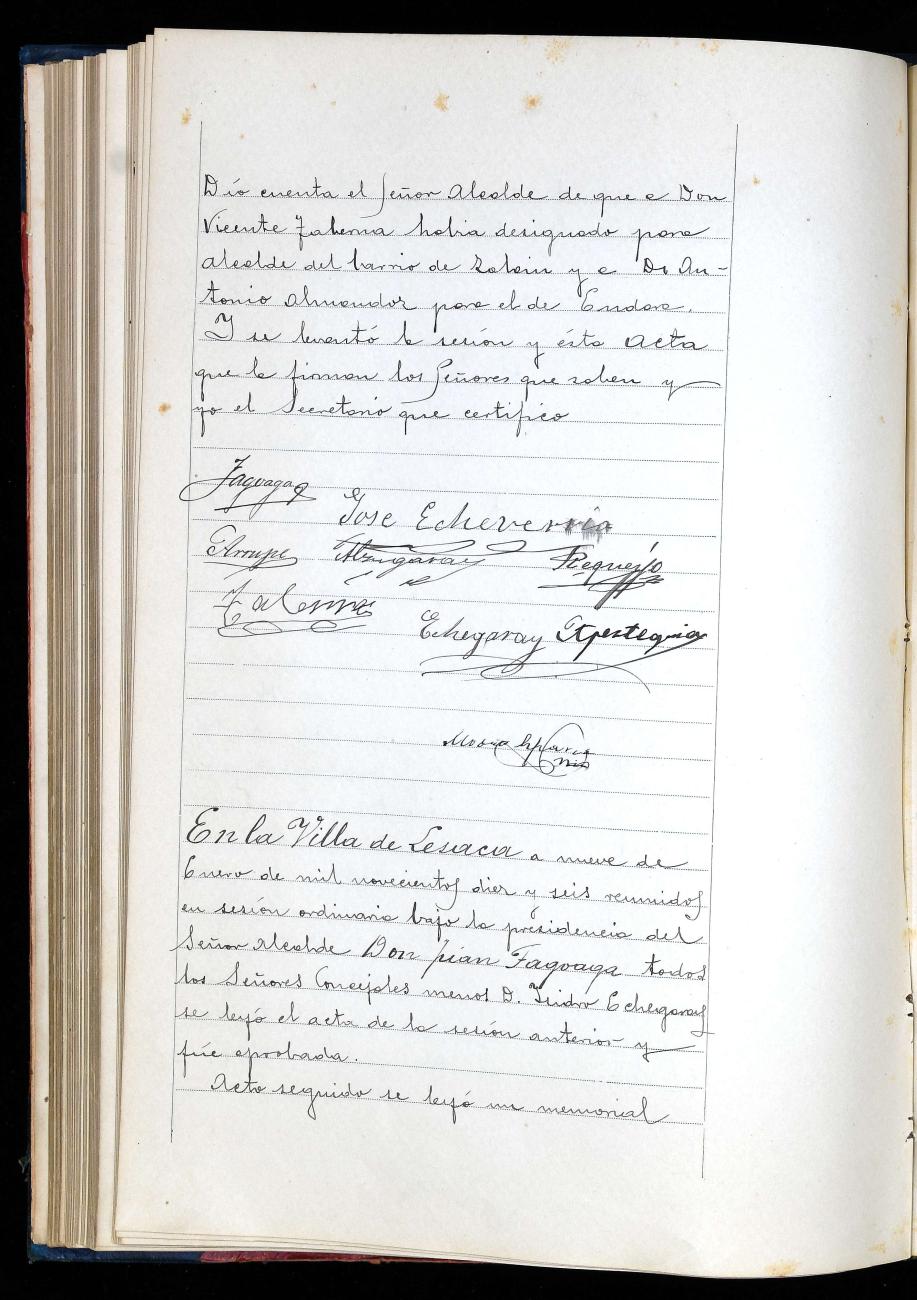 Dió cuenta el Señor Alcalde de que a Don
Vicente Taberna habia designado para
Alcalde del barrio de Zalain y a Dn An-
tonio Almandoz para el de Endara.
Y se levantó la sesión y ésta acta
que la firman los Señores que saben y
yo el Secretario que certifico
Fagoaga
Jose Echeverria
Arrupe Alzugaray Requejo
Taberna
Echegaray Apesteguia
En la Villa de Lesaca a nueve de
Enero de mil novecientos diez y seis reunidos
en sesión ordinaria bajo la presidencia del
Señor Alcalde Don Juan Fagoaga todos
los Señores Concejales menos D. Isidro Echegaray
se leyó el acta de la sesión anterior y
fúe aprobada.
Acto seguido se leyó un memorial